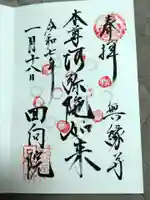 奉拝
無縁寺
本尊阿弥陀如来
回向院
令和七年
一月十八日